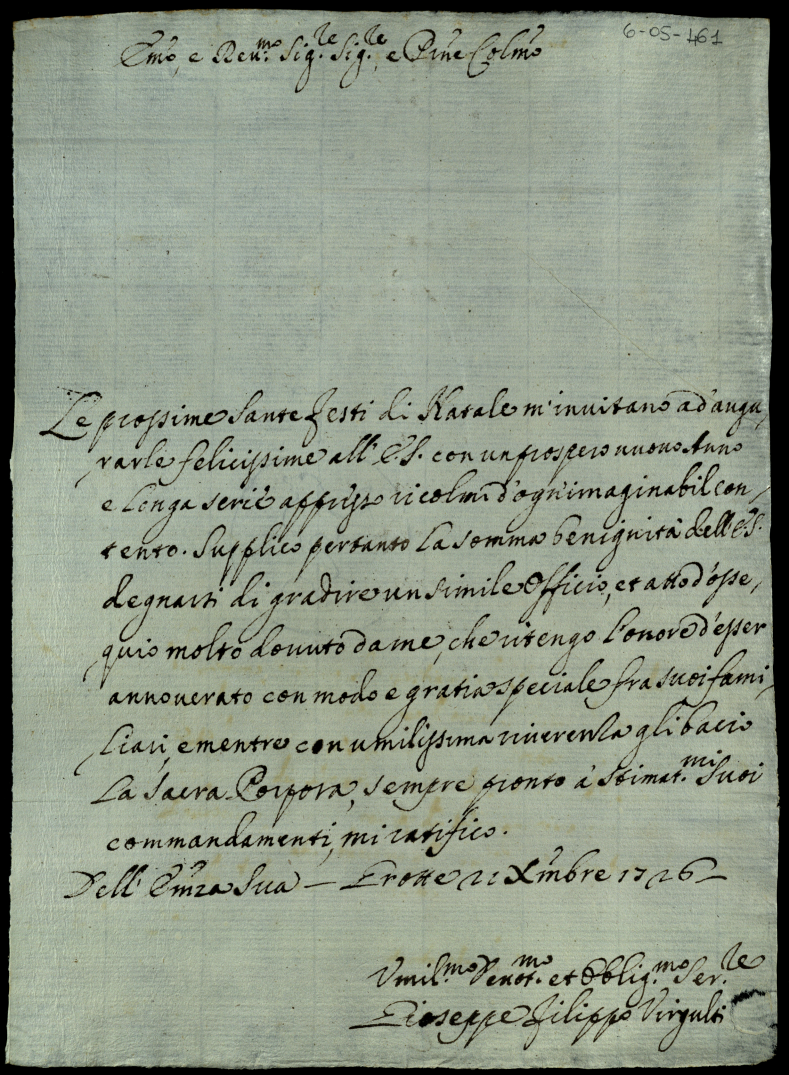 6-05-461
Emo, e Reu.mo Sig.re Sig.re, e Pñe Colmo
Le prossime Sante Festi di Natale m'inuitano ad'augu,
rarle felicissime all'E.S. con un prospero nuouo Anno
e longa serie appresso ricolmi d'ogn'imaginabil con,
tento. Supplico pertanto la somma benignità dell'E.S.
degnarsi di gradire un simile Officio, et atto d'osse,
quio molto douuto da me, che ritengo l'onore d'esser
annouerato con modo e gratia speciale fra suoi fami,
liari, e mentre con umilissima riuerenza gli bacio
la Sacra Porpora, sempre pronto à stimat.mi Suoi
commandamenti, mi ratifico.
Dell'Emza Sua — Grotte 21 Xmbre 1726
Vmil.mo Deuot.mo et Oblig.mo Ser.re
Gioseppe Filippo Virgulti